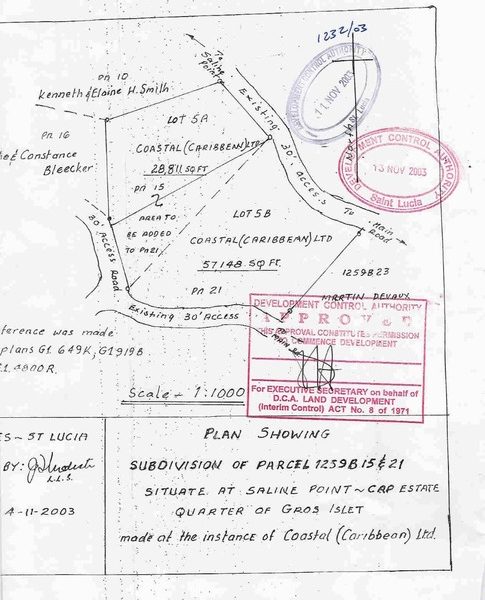 1232/03
DEVELOPMENT CONTROL AUTHORITY
11 NOV 2003
St. Lucia
To
Saline
Point
Pn 10
Kenneth & Elaine H. Smith
Existing 30' access
North
DEVELOPMENT CONTROL AUTHORITY
13 NOV 2003
Saint Lucia
LOT 5A
Pn 16
COASTAL (CARIBBEAN) LTD
28,811 SQ FT
& Constance
Bleecker
Pn 15
2
AREA TO
BE ADDED
TO Pn 21.
LOT 5B
To
Main
Road
COASTAL (CARIBBEAN) LTD
30' Access Road
57148. SQ FT.
1259B 23
Pn 21
MARTIN DEVAUX
DEVELOPMENT CONTROL AUTHORITY
APPROVED
THIS APPROVAL CONSTITUTES PERMISSION
COMMENCE DEVELOPMENT
Existing 30' Access
To
MAIN RD
ference was made
plans G1. 649K, G1919B
4800R.
Scale ÷ 1:1000
For EXECUTIVE SECRETARY on behalf of
D.C.A. LAND DEVELOPMENT
(Interim Control) ACT No. 8 of 1971
ES ~ ST LUCIA
BY:
L.L.S.
4-11-2003
PLAN SHOWING
SUBDIVISION OF PARCEL 1259B 15 & 21
SITUATE AT SALINE POINT ~ CAP ESTATE
QUARTER OF GROS ISLET
made at the instance of Coastal (Caribbean) Ltd.